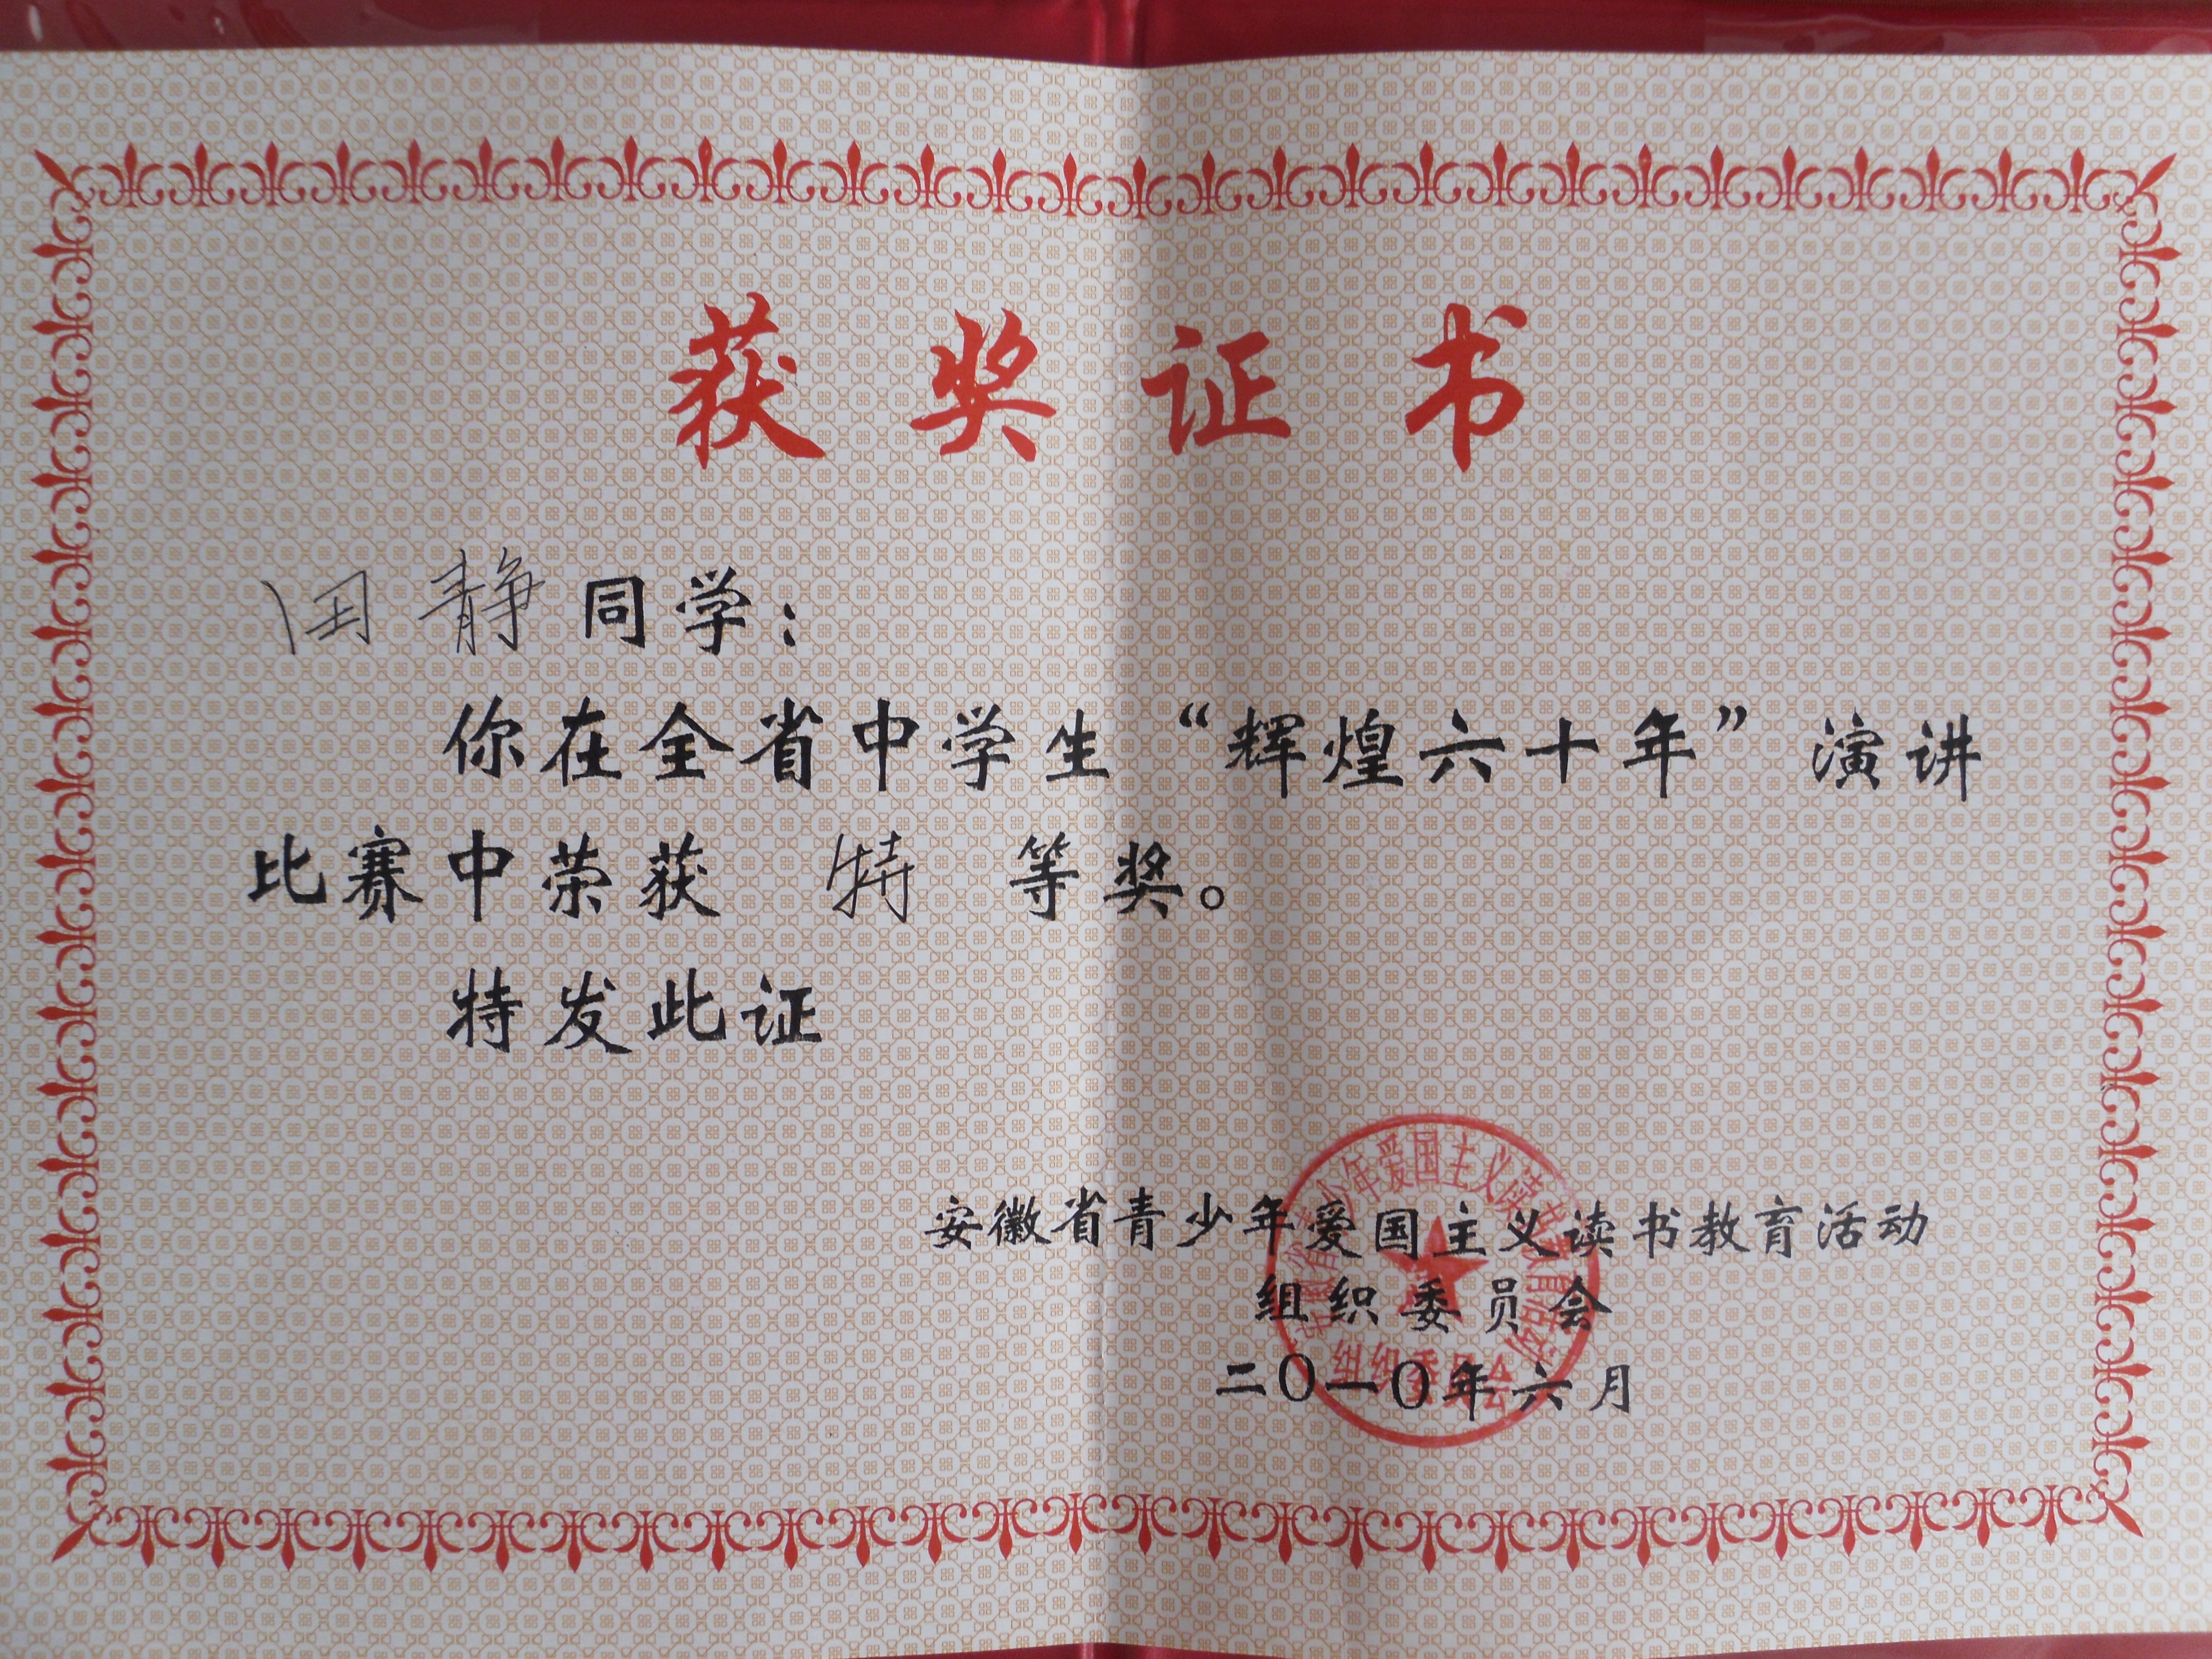 获奖证书
田静同学：
你在全省中学生“辉煌六十年”演讲
比赛中荣获 特 等奖。
特发此证
安徽省青少年爱国主义读书教育活动
组织委员会
二〇一〇年六月
安徽省青少年爱国主义读书教育活动
组织委员会